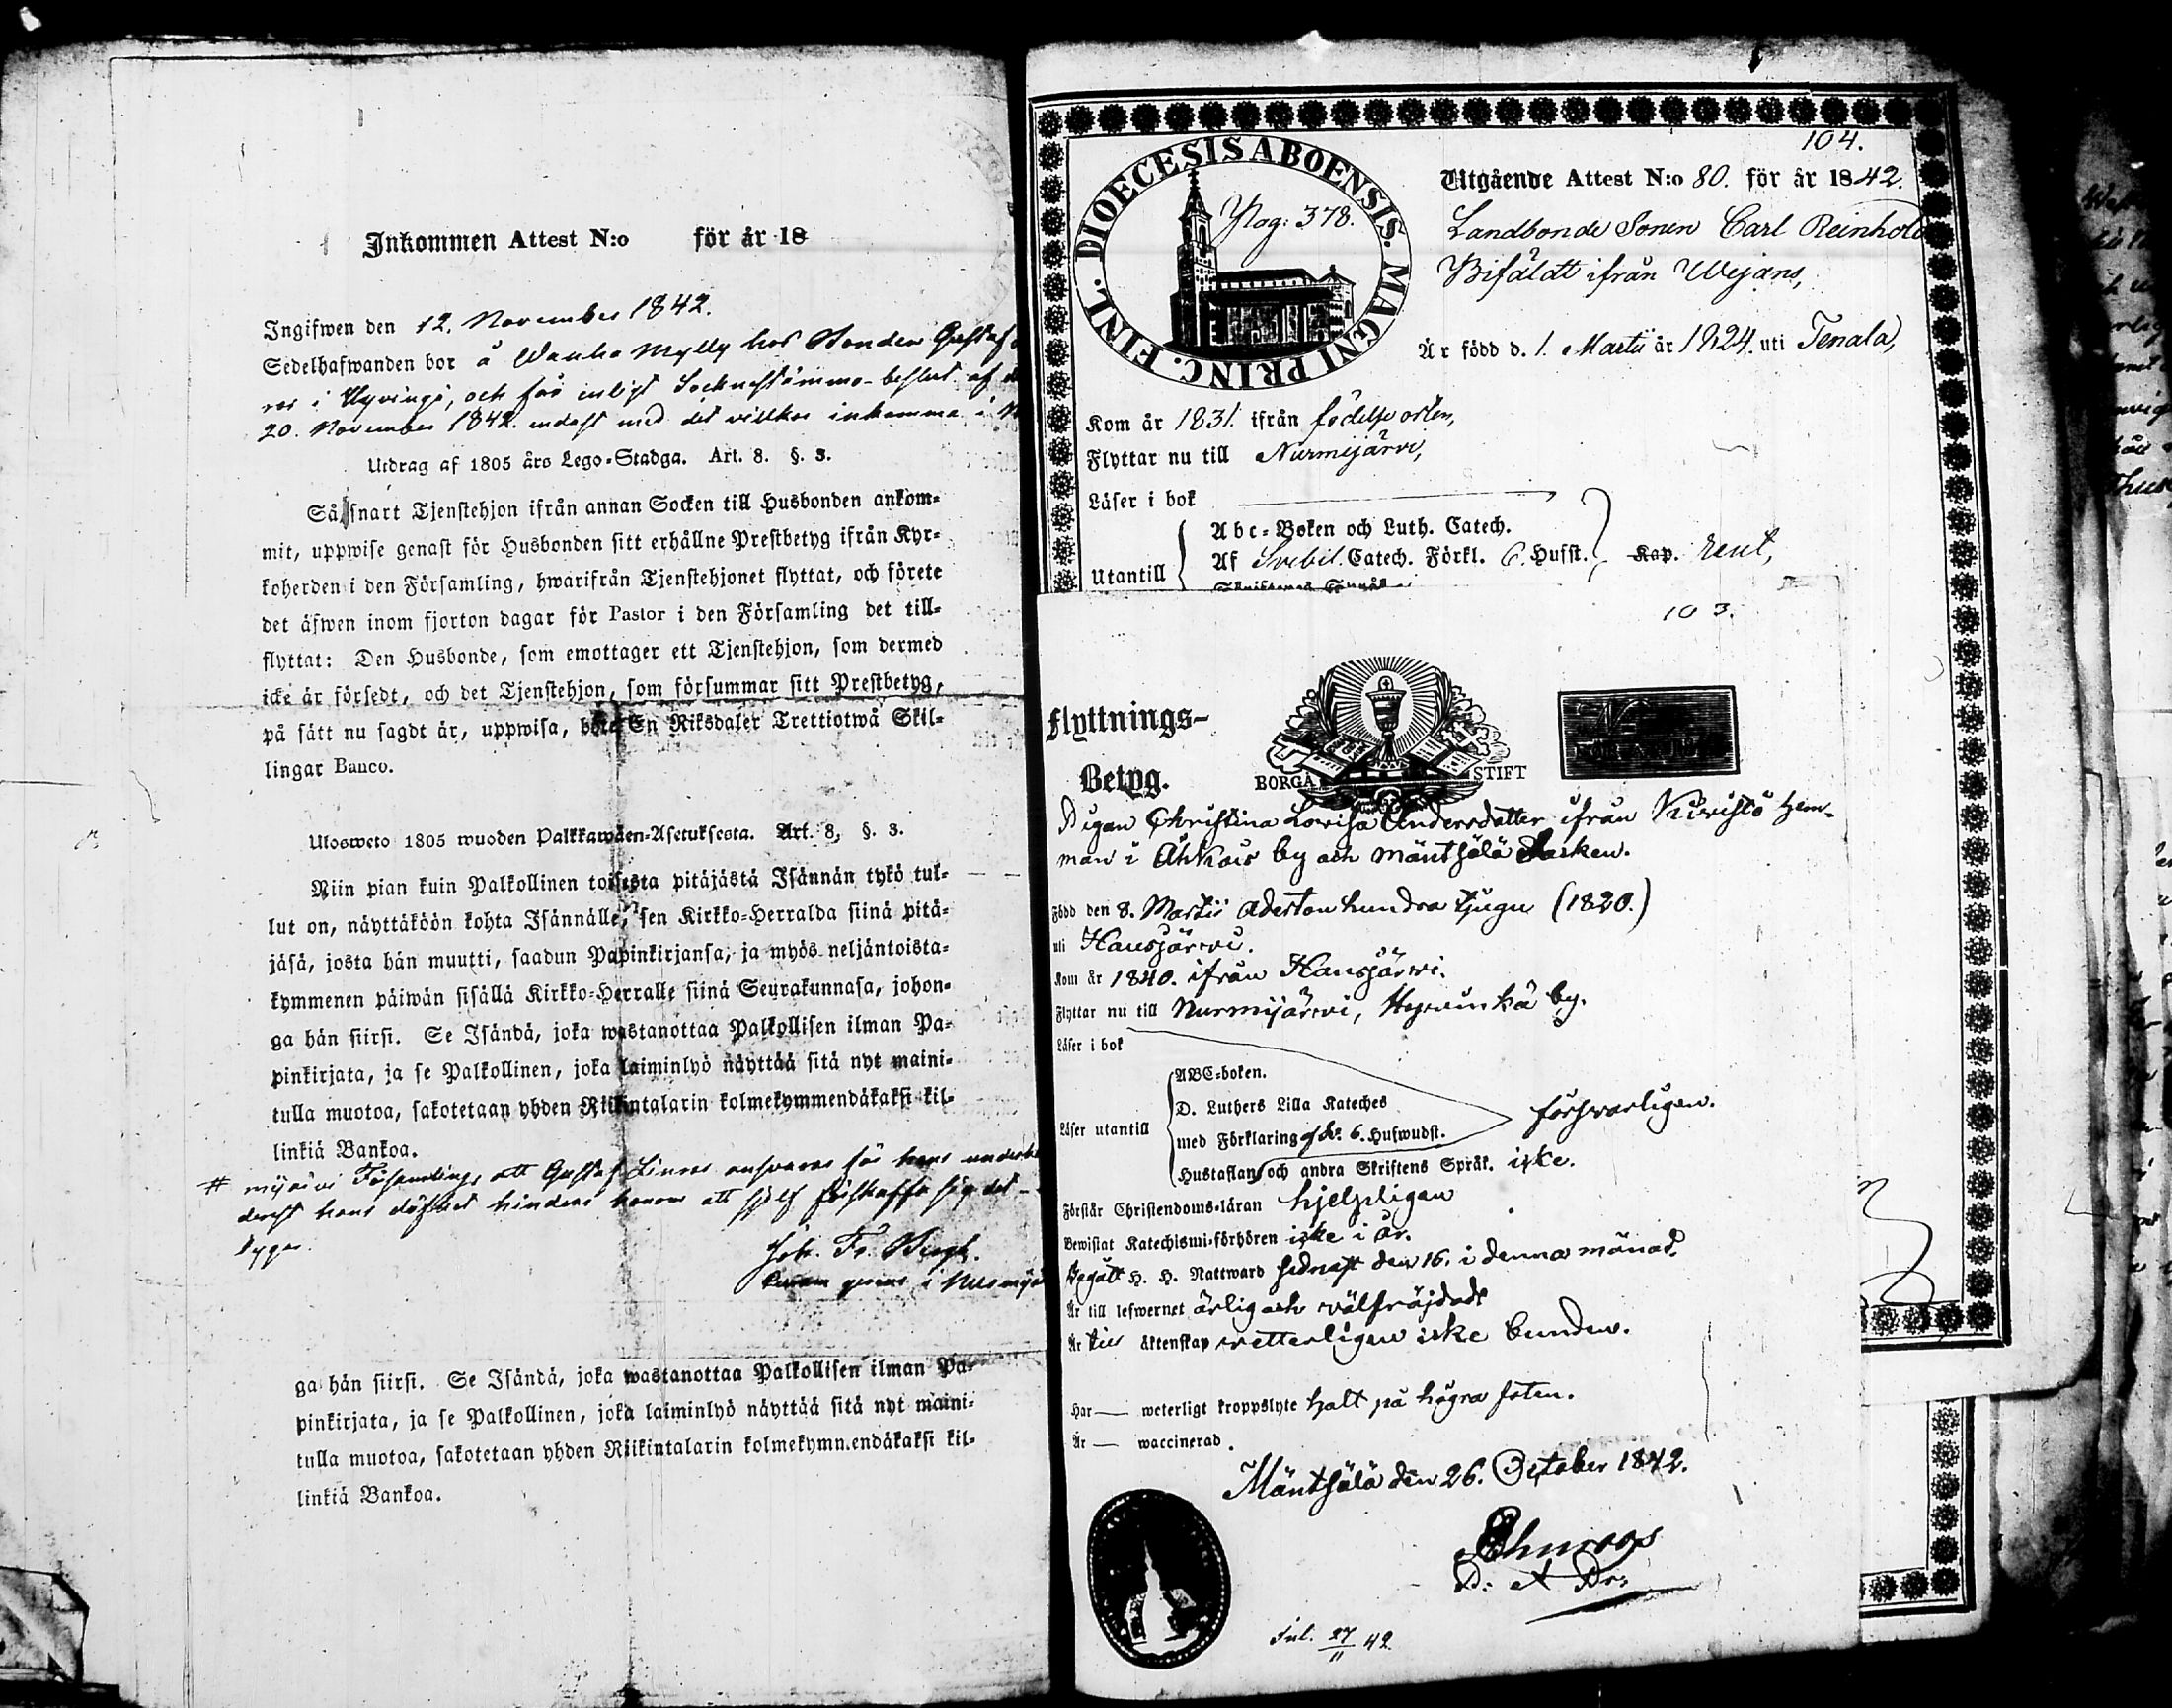 Inkommen Attest N:o för år 18
Ingifwen den 12. November 1842.
Sedelhafwanden bor å Wanha Mylly hos Bonden Gustaf
ros i Hyvinge, och får enligt Socknestämmo-beslut af d
20. November 1842. endast med det villkor inkomma i N
Utdrag af 1805 års Lego-Stadga. Art. 8. §. 3.
Så snart Tjenstehjon ifrån annan Socken till Husbonden ankom-
mit, uppwise genast för Husbonden sitt erhållne Prestbetyg ifrån Kyr-
koherden i den Församling, hwarifrån Tjenstehjonet flyttat, och förete
det äfwen inom fjorton dagar för Pastor i den Församling det till-
flyttat: Den Husbonde, som emottager ett Tjenstehjon, som dermed
icke är försedt, och det Tjenstehjon, som försummar sitt Prestbetyg,
på sätt nu sagdt är, uppwisa, böte En Riksdaler Trettiotwå Skil-
lingar Banco.
Ulosweto 1805 wuoden Palkkawäen-Asetuksesta. Art. 8, §. 3.
Niin pian kuin Palkollinen toisesta pitäjästä Isännän tykö tul-
lut on, näyttäköön kohta Isännälle, sen Kirkko-Herralda siinä pitä-
jäsä, josta hän muutti, saadun Papinkirjansa, ja myös neljäntoista-
kymmenen päiwän sisällä Kirkko-Herralle siinä Seurakunnasa, johon-
ga hän siirsi. Se Isändä, joka wastanottaa Palkollisen ilman Pa-
pinkirjata, ja se Palkollinen, joka laiminlyö näyttää sitä nyt maini-
tulla muotoa, sakotetaan yhden Riikintalarin kolmekymmendäkaksi kil-
linkiä Bankoa.
# mijärvi Församling, att Gustaf Linros ansvarar för hans underh
derest hans döfhet hindrar honom att sjelf förskaffa sig det
Joh. Fr. Bergh.
i Nurmijä
ga hän siirsi. Se Isändä, joka wastanottaa Palkollisen ilman Pa-
pinkirjata, ja se Palkollinen, joka laiminlyö näyttää sitä nyt maini-
tulla muotoa, sakotetaan yhden Riikintalarin kolmekymmendäkaksi kil-
linkiä Bankoa.
104.
DIOECESIS ABOENSIS. MAGNI PRINC. FINL.
Pag: 378.
Utgående Attest N:o 80. för år 1842.
Landbonde Sonen Carl Reinhold
Bifäldt ifrån Wejans,
Är född d. 1. Martii år 1824. uti Tenala,
Kom år 1831. ifrån födelse orten,
Flyttar nu till Nurmijärvi,
Läser i bok
Utantill
Abc-Boken och Luth. Catech.
Af Svebil. Catech. Förkl. 6. Hufst. Kap. rent,
103.
Flyttnings-
Betyg.
BORGÅ STIFT
Pigan Christina Lovisa Andersdotter ifrån Kiviströ hem-
man i Ähkäis by och Mäntsälä Socken.
Född den 8. Martii Adertonhundra tjugu (1820.)
uti Hausjärvi.
Kom år 1840. ifrån Hausjärwi.
Flyttar nu till Nurmijärvi, Hyvinkä by.
Läser i bok
Läser utantill
ABC-boken.
D. Luthers Lilla Kateches
med Förklaring af de 6. Hufwudst. försvarligen.
Hustaflan och andra Skriftens Språk. icke.
Förstår Christendoms-läran hjelpligen
Bewistat Katechismi-förhören icke i år.
Begått H. H. Nattward sednast den 16. i denna månad.
Är till lefwernet ärlig och välfräjdad
Är till äktenskap vetterligen icke bunden.
Har — weterligt kroppslyte halt på högra foten.
Är — waccinerad.
Mäntsälä den 26. October 1842.
Ehnroos
Inl. 27/11 42.